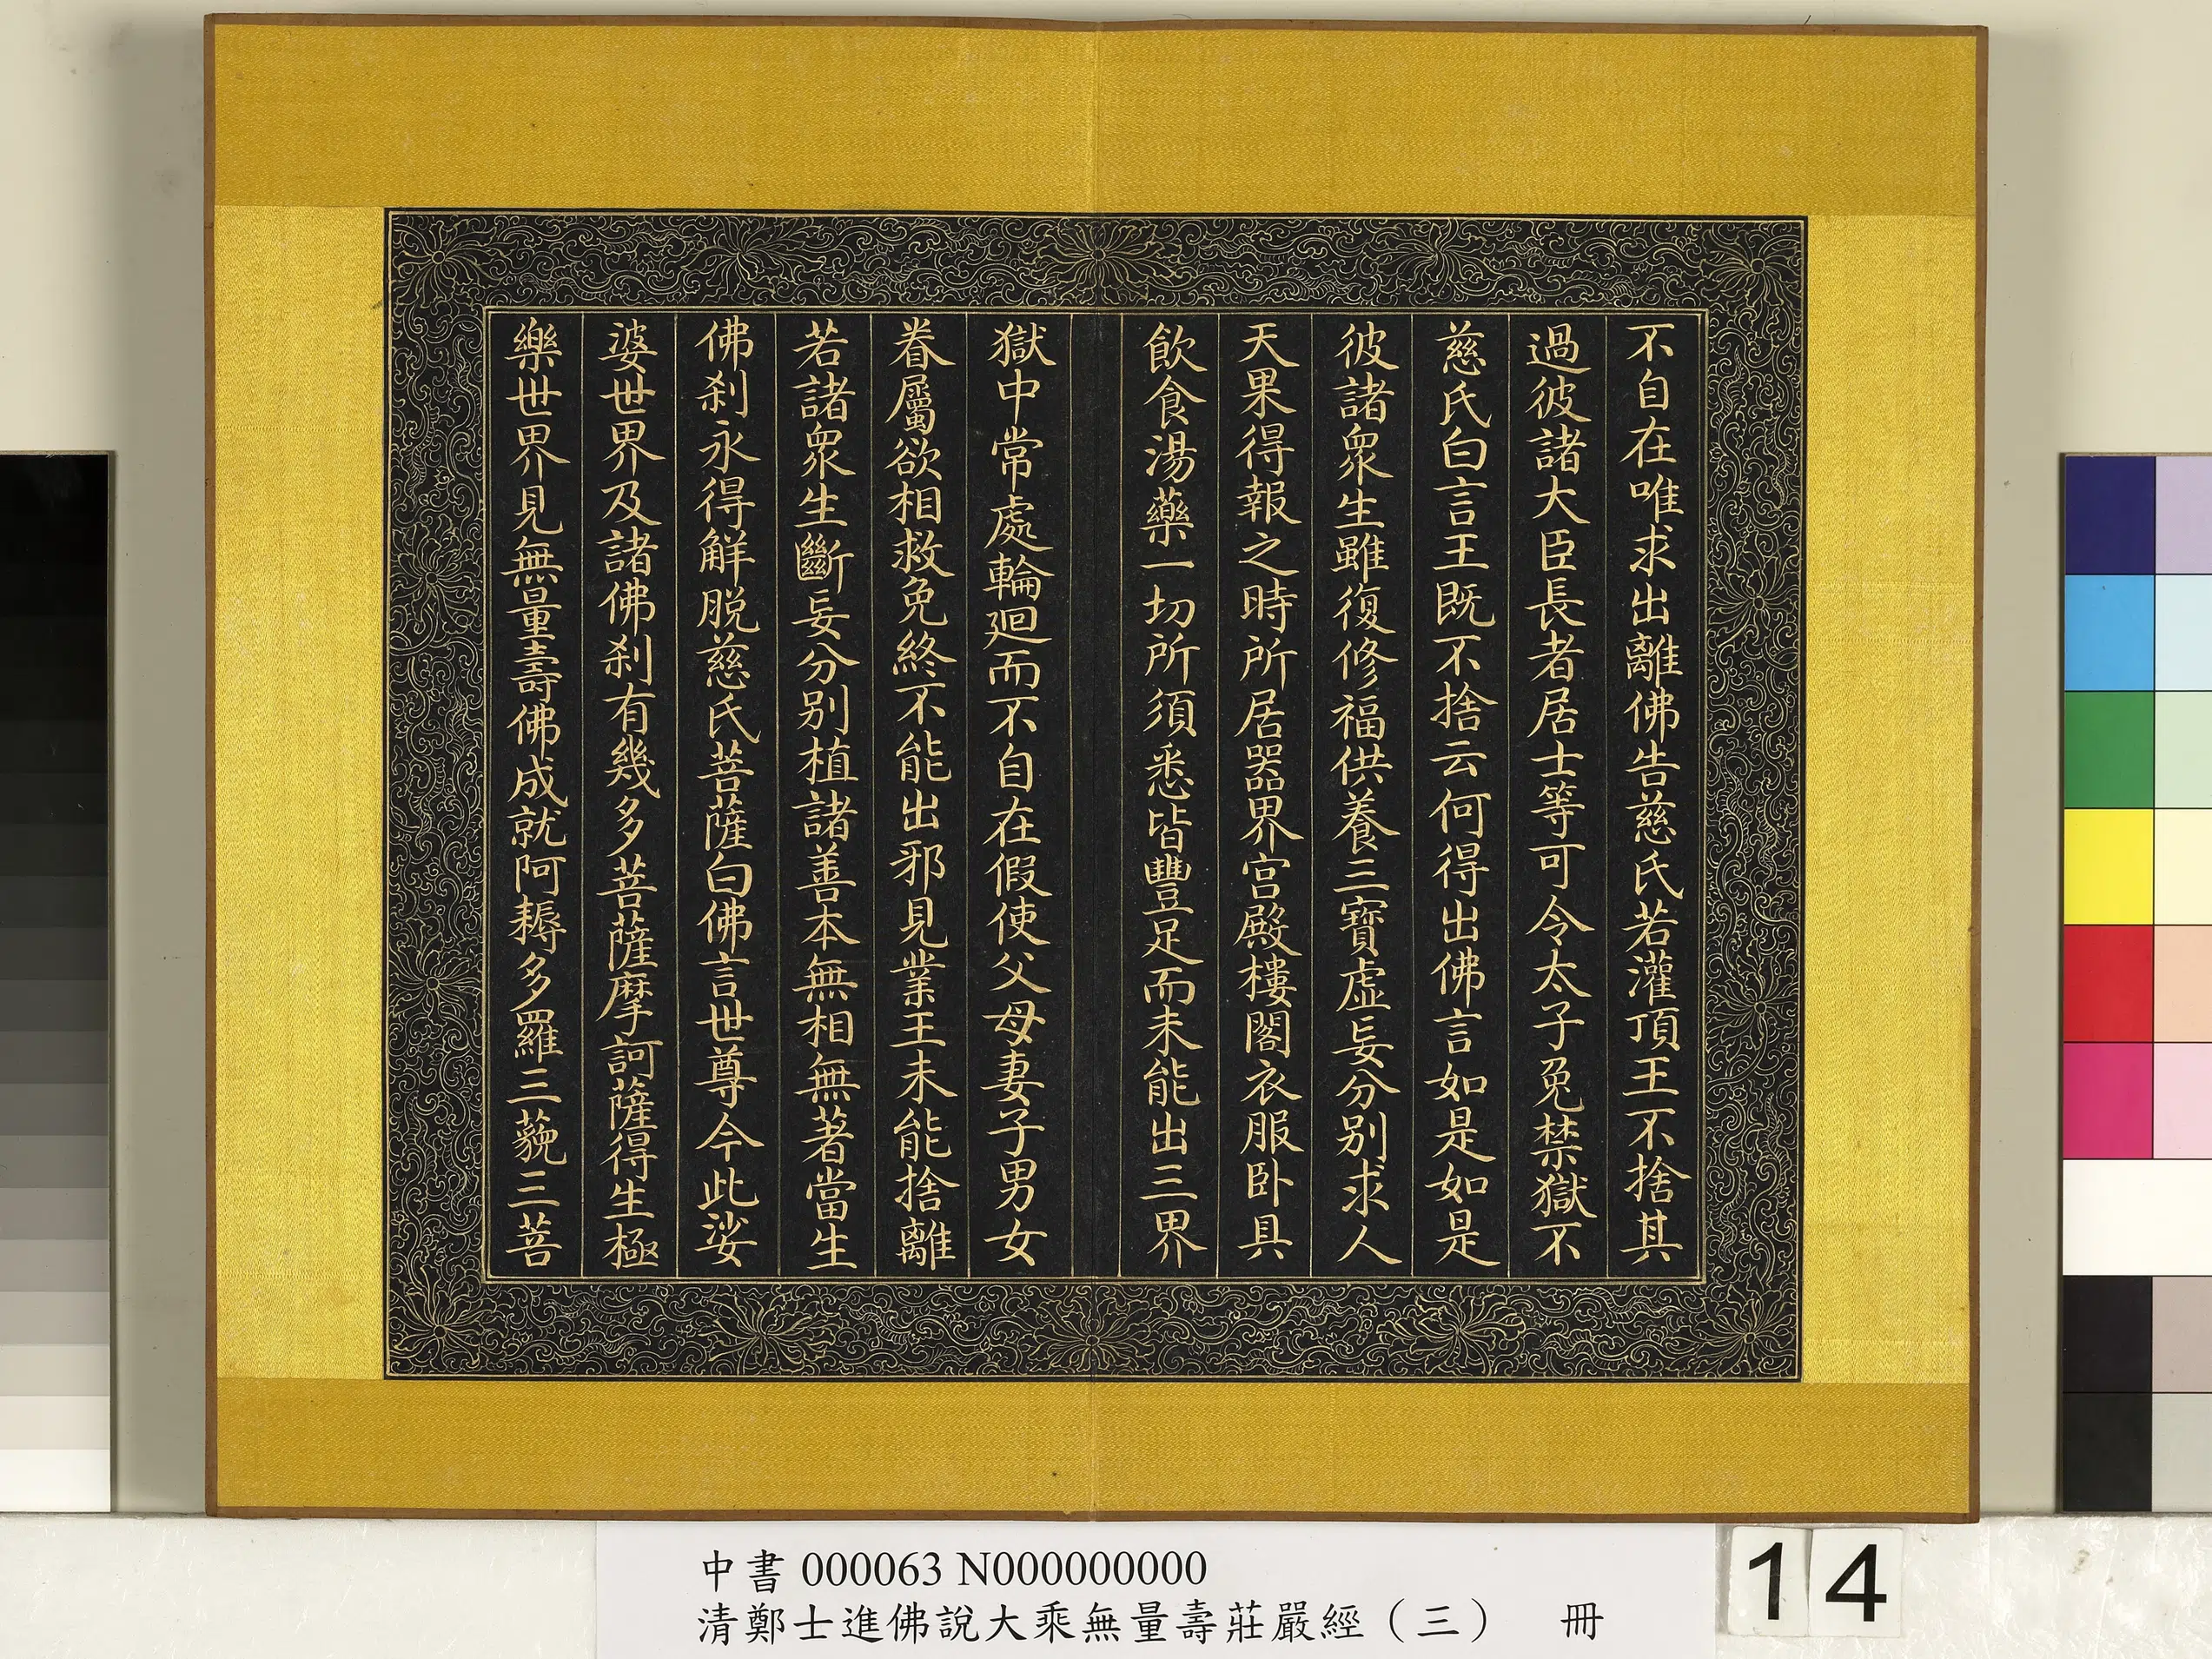 不自在唯求出離佛告慈氏若灌頂王不捨其
過彼諸大臣長者居士等可令太子免禁獄不
慈氏白言王既不捨云何得出佛言如是如是
彼諸眾生雖復修福供養三寶虛妄分別求人
天果得報之時所居器界宮殿樓閣衣服臥具
飲食湯藥一切所須悉皆豐足而未能出三界
獄中常處輪迴而不自在假使父母妻子男女
眷屬欲相救免終不能出邪見業王未能捨離
若諸眾生斷妄分別植諸善本無相無著當生
佛剎永得解脫慈氏菩薩白佛言世尊今此娑
婆世界及諸佛剎有幾多菩薩摩訶薩得生極
樂世界見無量壽佛成就阿耨多羅三藐三菩
中書 000063 N000000000
清鄭士進佛說大乘無量壽莊嚴經（三） 冊
14